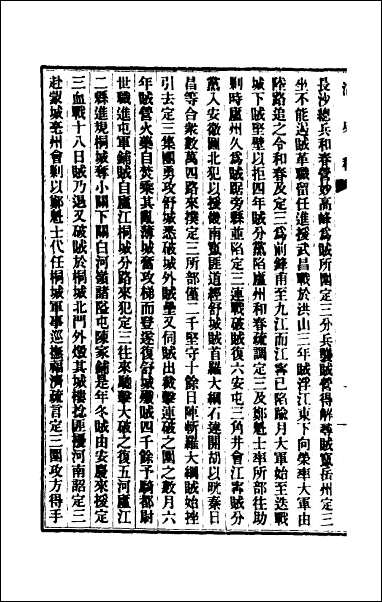 長沙總兵和春營妙高峰爲賊所圍定三分兵襲賊營得解尋賊竄岳州定三
坐不能遏賊革職留任進援武昌戰於洪山三年賊浮江東下向榮率大軍由
陸路追之令和春及定三爲前鋒甫至九江而江寧已陷踰月大軍始至迭戰
城下賊堅壁以拒四年賊分黨陷廬州和春疏調定三及鄭魁士率所部往助
剿時廬州久爲賊踞旁縣並陷定三連戰破賊復六安屯三角井會江寧賊分
黨入安徽圖北犯以援畿南竄匪道經舒城賊首羅大綱石達開胡以晄秦日
昌等合衆數萬四路來撲定三所部僅二千堅守十餘日陣斬羅大綱賊始挫
引去定三集團勇攻舒城悉破城外賊壘又伺賊出截擊連破之圍之數月六
年賊營火藥自焚乘其亂薄城奮攻梯而登遂復舒城殲賊四千餘予騎都尉
世職進屯軍鋪賊自廬江桐城分路來犯定三往來馳擊大破之復五河廬江
二縣進規桐城奪小關下關白河嶺諸隘屯陳家鋪是年冬賊由安慶來援定
三血戰十八日賊乃退又破賊於桐城北門外燬其城樓捻匪擾河南詔定三
赴蒙城亳州會剿以鄭魁士代任桐城軍事巡撫福濟疏言定三圍攻方得手